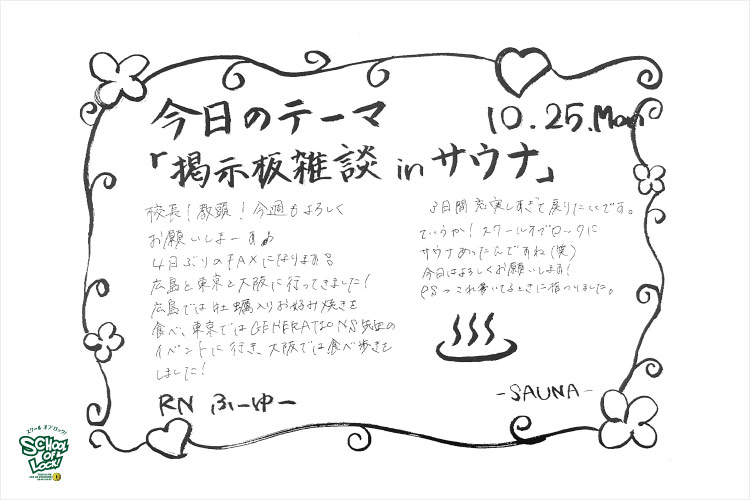 今日のテーマ
10.25.Mon
「掲示板雑談 in サウナ」
校長！教頭！今週もよろしく
お願いしまーす♪
4日ぶりのFAXになります
広島と東京と大阪に行ってきました！
広島では牡蠣入りお好み焼きを
食べ、東京ではGENERATIONS先生の
イベントに行き、大阪では食べ歩きを
しました！
RN ふーゆー
3日間充実しすぎて戻りたいです。
ていうか！スクールオブロックに
サウナあったんですね(笑)
今日はよろしくお願いします！
PS→これ書いてるときに指つりました。
-SAUNA-
スクール オブ ロック！
SCHOOL
OF
LOCK!